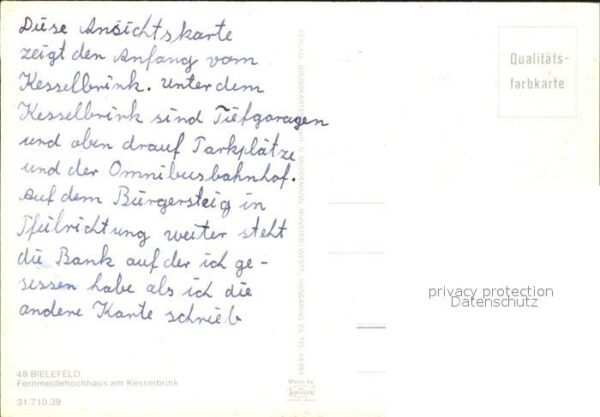 Diese Ansichtskarte
zeigt den Anfang vom
Kesselbrink. Unter dem
Kesselbrink sind Tiefgaragen
und oben drauf Parkplätze
und der Omnibusbahnhof.
Auf dem Bürgersteig in
Pfeilrichtung weiter steht
die Bank auf der ich ge-
sessen habe als ich die
andere Karte schrieb
48 BIELEFELD
Fernmeldehochhaus am Kesselbrink
31.710.39
Made by
Qualitäts-
farbkarte
privacy protection
Datenschutz